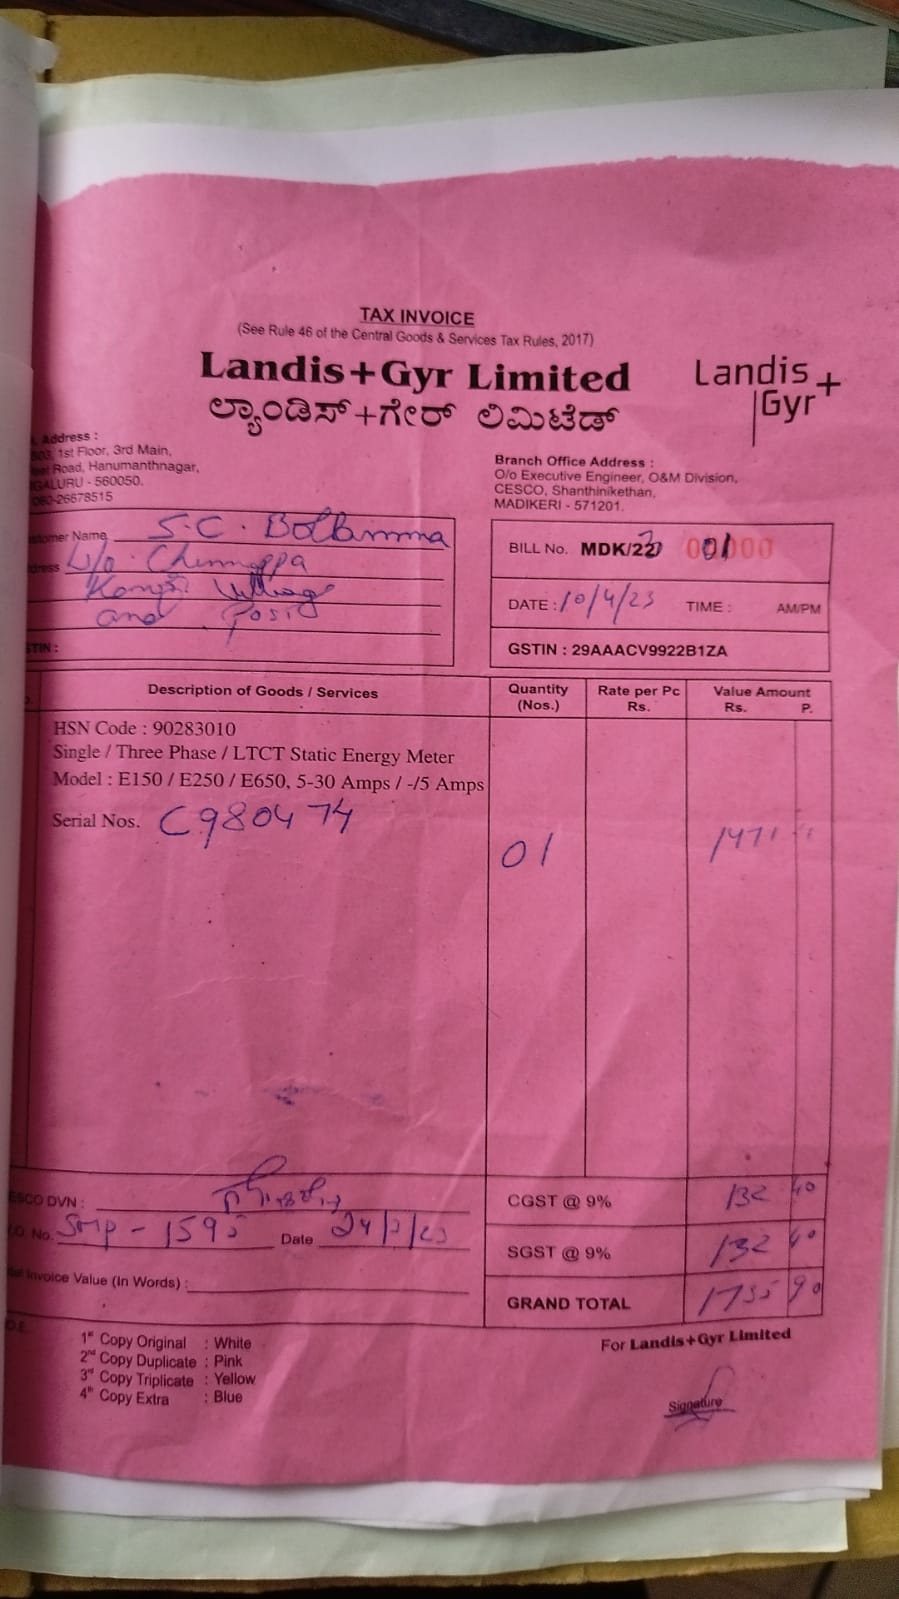 TAX INVOICE
(See Rule 46 of the Central Goods & Services Tax Rules, 2017)
Landis+Gyr Limited
ಲ್ಯಾಂಡಿಸ್+ಗೇರ್ ಲಿಮಿಟೆಡ್
Landis+
Gyr
Address :
1st Floor, 3rd Main,
Road, Hanumanthnagar,
GALURU - 560050.
080-26678515
Branch Office Address :
O/o Executive Engineer, O&M Division,
CESCO, Shanthinikethan,
MADIKERI - 571201.
stomer Name S.C. Bollamma
dress
Village
and Post
STIN :
BILL No. MDK/22
DATE : 10/4/23 TIME : AM/PM
GSTIN : 29AAACV9922B1ZA
Description of Goods / Services
Quantity (Nos.)
Rate per Pc Rs.
Value Amount Rs. P.
HSN Code : 90283010
Single / Three Phase / LTCT Static Energy Meter
Model : E150 / E250 / E650, 5-30 Amps / -/5 Amps
Serial Nos. C980474
01
1471
ESCO DVN :
O. No. Smp - 1595 Date
Invoice Value (In Words) :
CGST @ 9% 132 40
SGST @ 9% 132 40
GRAND TOTAL 1735 90
1st Copy Original : White
2nd Copy Duplicate : Pink
3rd Copy Triplicate : Yellow
4th Copy Extra : Blue
For Landis+Gyr Limited
Signature